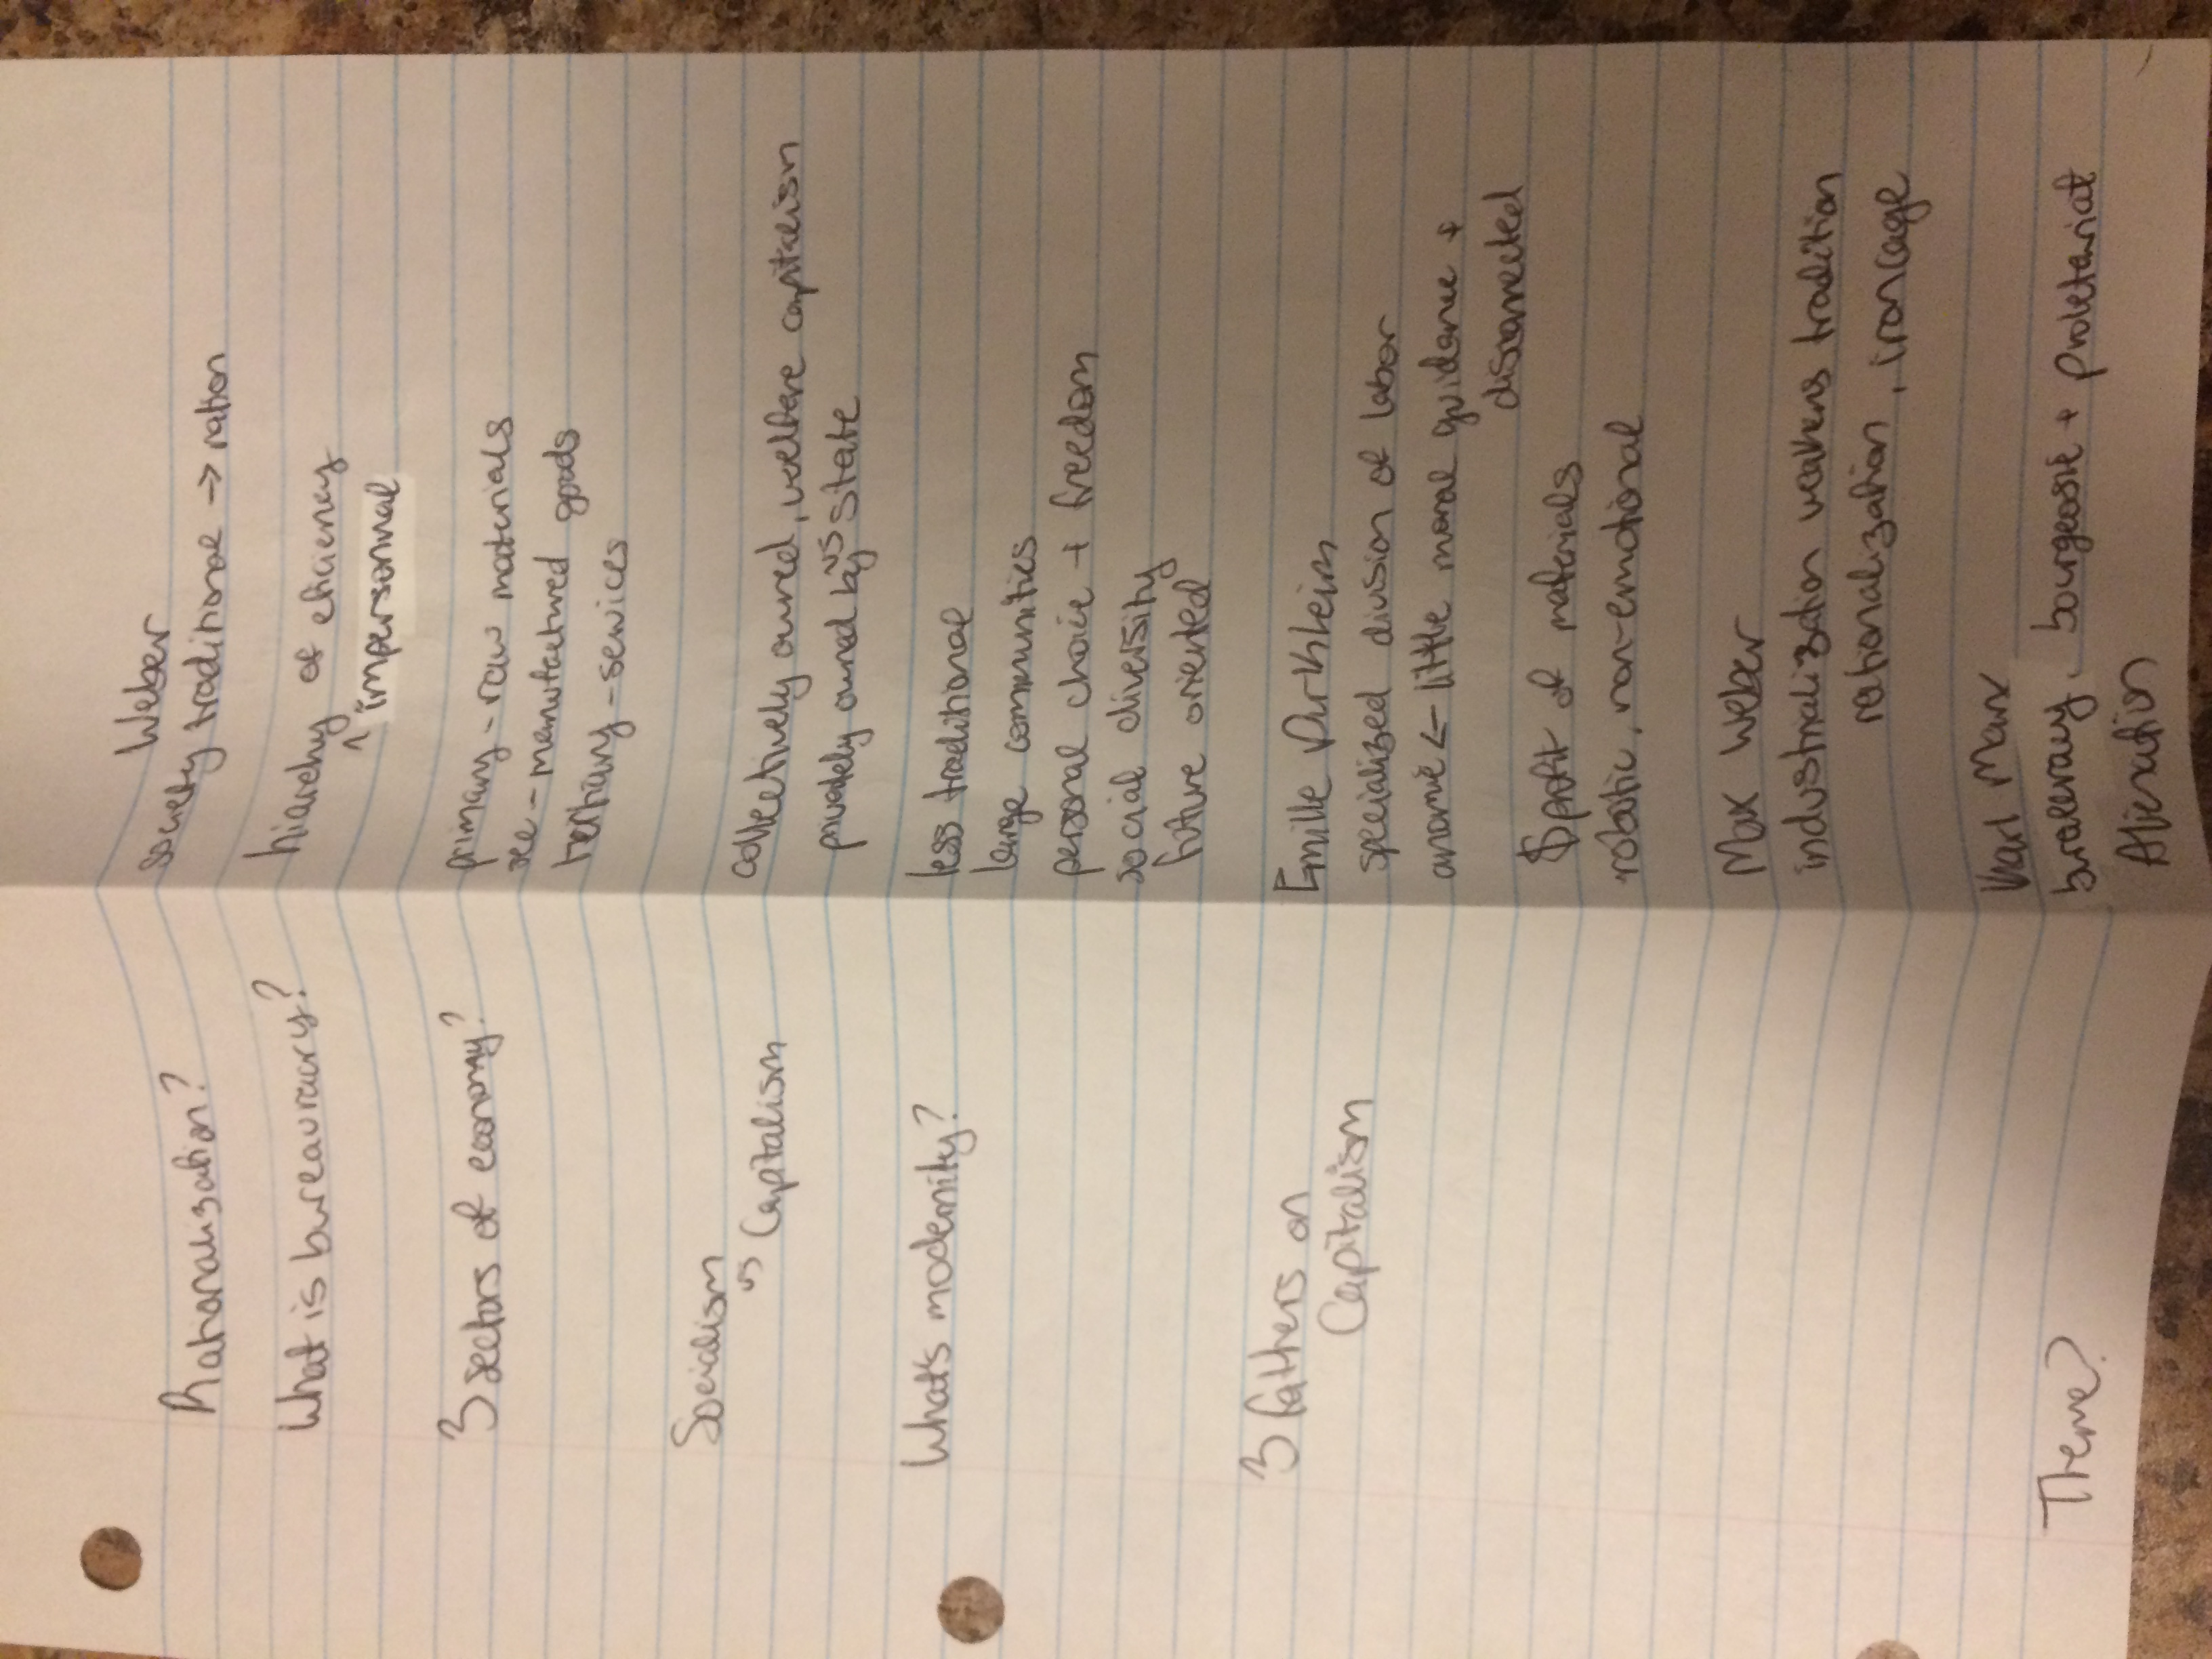 Weber
Rationalization? society traditional → ration
What is bureauracy? hierarchy of efficiency
^ impersonal
3 sectors of economy? primary - raw materials
sec. - manufactured goods
tertiary - services
Socialism collectively owned, welfare capitalism
vs Capitalism privately owned by vs state
What's modernity? less traditional
large communities
personal choice + freedom
social diversity
future oriented
3 fathers on Emille Durkheim
Capitalism specialized division of labor
anomie ← little moral guidance +
disconnected
$ profit of materials
robotic, non-emotional
Max Weber
industrialization weakens tradition
rationalization, iron cage
Karl Marx
Theme? buraeracy, bourgeosie + proletariat
Alienation